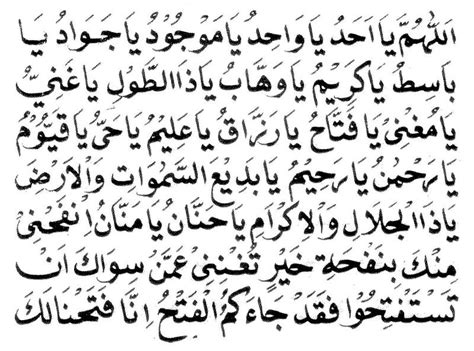 اَللّٰهُمَّ يَا اَحَدُ يَا وَاحِدُ يَا مَوْجُوْدُ يَا جَوَادُ يَا
بَاسِطُ يَا كَرِيْمُ يَا وَهَّابُ يَا ذَا الطَّوْلِ يَا غَنِيُّ
يَا مُغْنِيْ يَا فَتَّاحُ يَا رَزَّاقُ يَا عَلِيْمُ يَا حَيُّ يَا قَيُّوْمُ
يَا رَحْمٰنُ يَا رَحِيْمُ يَا بَدِيْعَ السَّمٰوَاتِ وَالْاَرْضِ
يَا ذَا الْجَلَالِ وَالْاِكْرَامِ يَا حَنَّانُ يَا مَنَّانُ اِنْفَحْنِيْ
مِنْكَ بِنَفْحَةِ خَيْرٍ تُغْنِنِيْ عَمَّنْ سِوَاكَ اَنْ
تَسْتَفْتِحُوْا فَقَدْ جَاءَكُمُ الْفَتْحُ اِنَّا فَتَحْنَا لَكَ